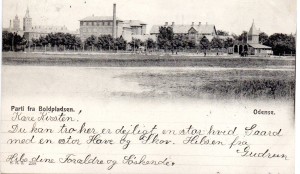 Parti fra Boldpladsen.
Odense.
Kære Kirsten.
Du kan tro her er dejligt en stor hvid Gaard
med en stor Have og Skov. Hilsen fra
Gudrun
Hils dine Forældre og Søskende.